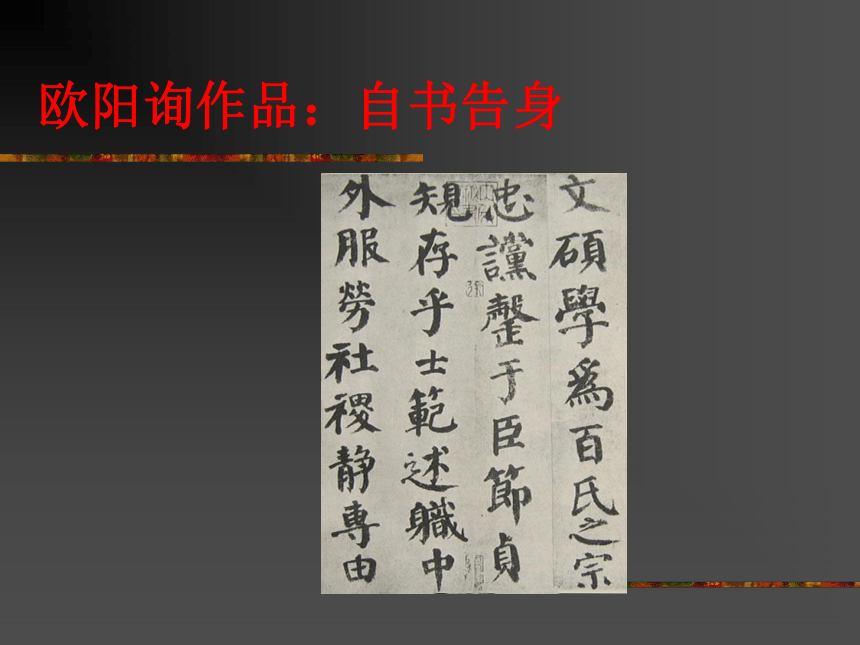 欧阳询作品：自书告身
文碩學爲百氏之宗
忠讜罄于臣節貞
規存乎士範述職中
外服勞社稷靜專由